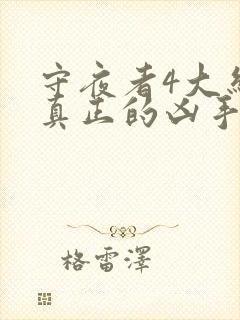 守夜者4大
真正的凶手
格雷澤